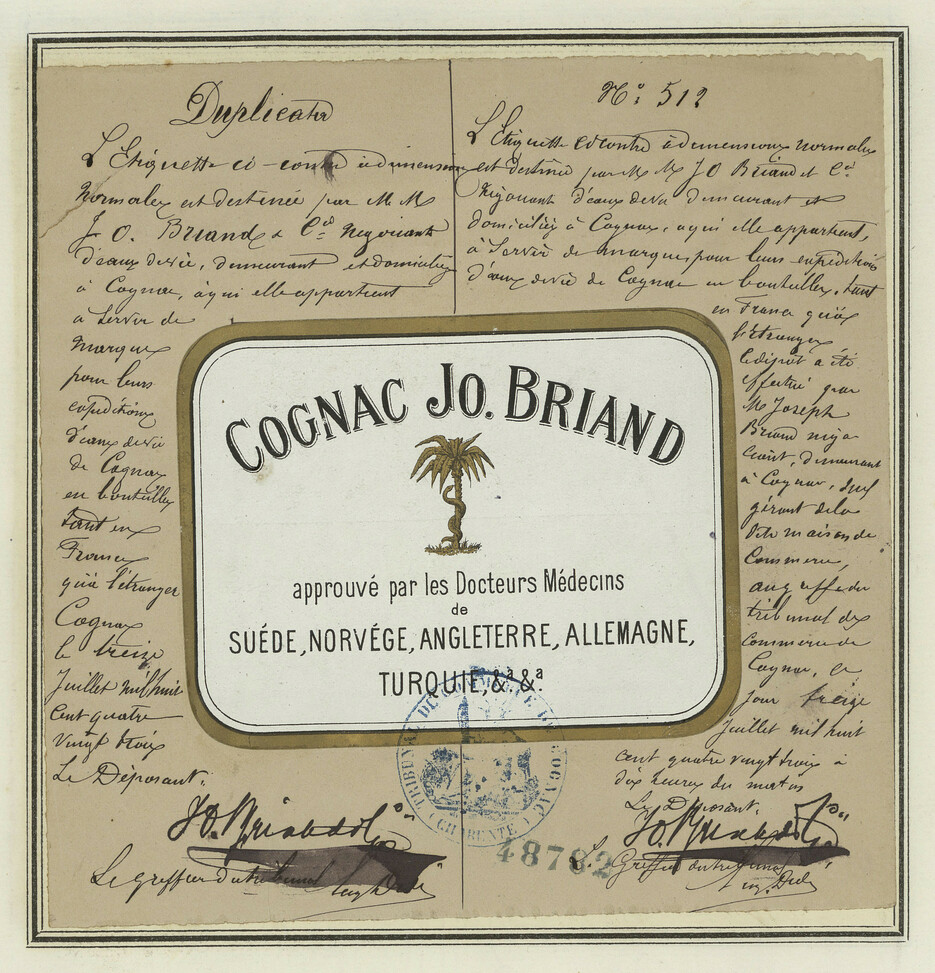 Duplicata
L'Etiquette ci-contre à dimensions
Normales est destinée par M M
J. O. Briand & Cie Négociants
d'eaux de vie, demeurant et domiciliés
à Cognac, à qui elle appartient
à servir de
marque
pour leurs
expéditions
d'eaux de vie
de Cognac
en bouteilles
tant en
France
qu'à l'étranger
Cognac
le treize
Juillet mil huit
cent quatre
vingt trois
Le Déposant.
Jo. Briand & Co
Le greffier du tribunal
No. 512
L'Etiquette ci contre à dimensions normales
est destinée par M M JO Briand et Cie
Négociants d'eaux de vie demeurant et
domiciliés à Cognac, à qui elle appartient,
à Servir de marque, pour leurs expéditions
d'eaux de vie de Cognac en bouteilles, tant
en France qu'à
l'étranger
Le dépôt a été
effectué par
M Joseph
Briand négo
ciant, demeurant
à Cognac, seul
gérant de la
dite maison de
Commerce,
au greffe du
tribunal de
Commerce de
Cognac, ce
jour treize
Juillet mil huit
cent quatre vingt trois à
dix heures du matin
Le Déposant.
Jo. Briand & Co
Le Greffier du tribunal
COGNAC JO. BRIAND
approuvé par les Docteurs Médecins
de
SUÉDE, NORVÉGE, ANGLETERRE, ALLEMAGNE,
TURQUIE, &a &a.
TRIBUNAL DE COMMERCE DE COGNAC
(CHARENTE)
48782